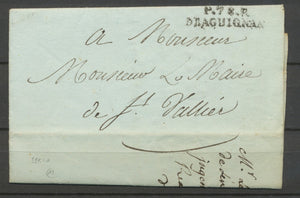 P.78.P.
DRAGUIGNAN
A Monsieur
Monsieur Le Maire
de St. Vallier
Mr. Le
de
jugem